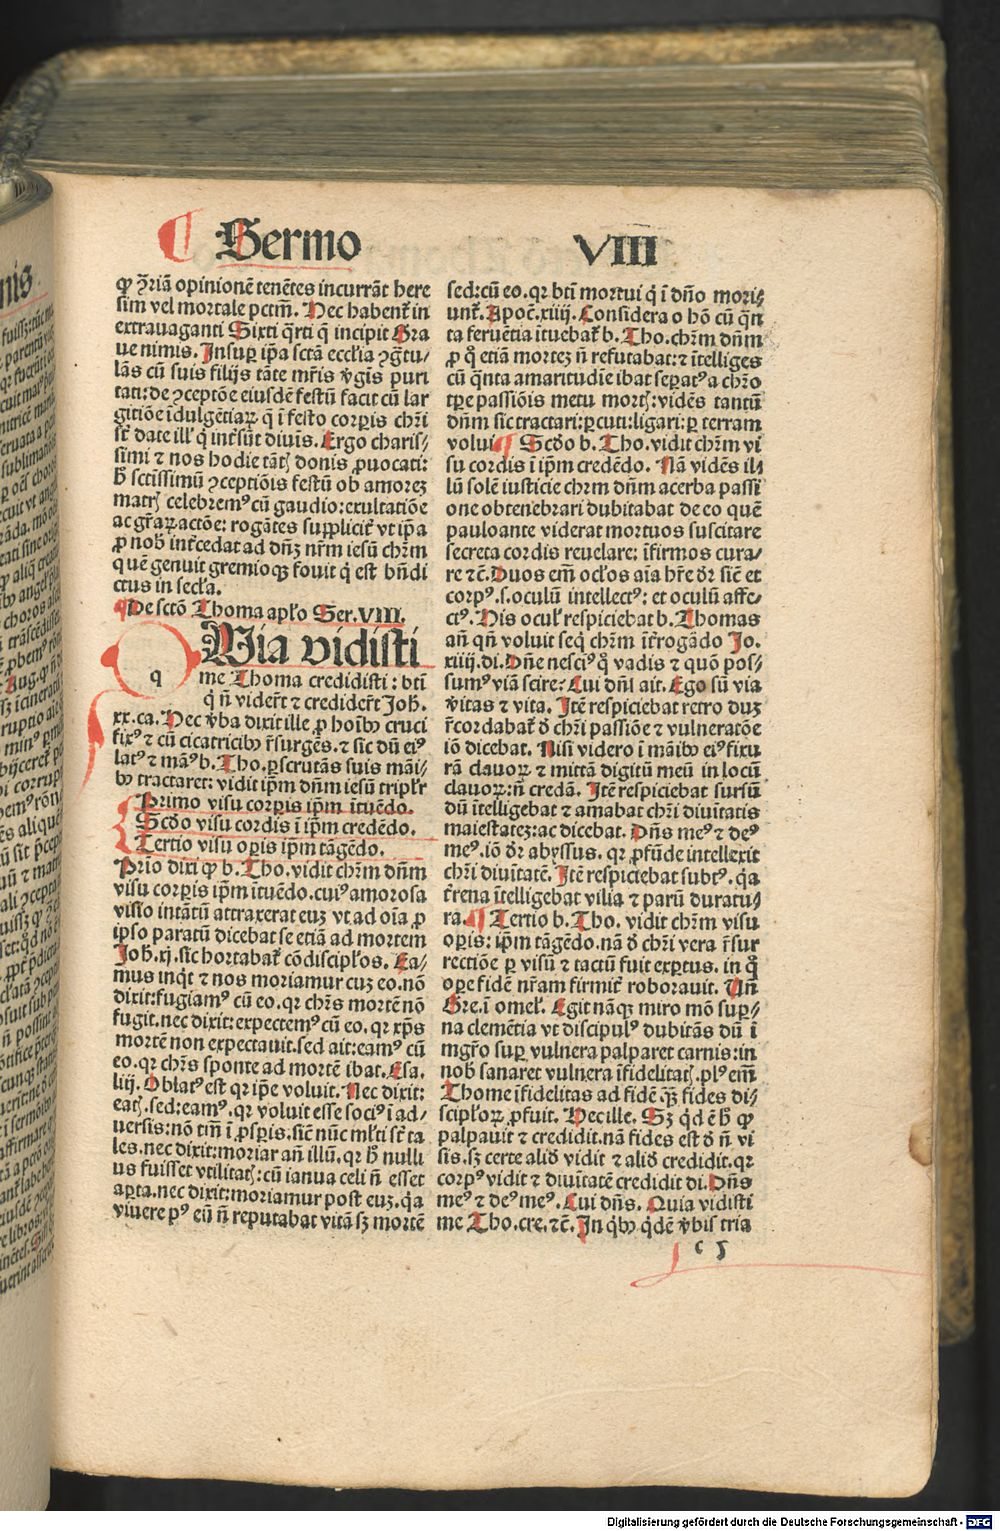 Sermo VIII
ꝙ ꝯͬriā opinionē tenētes incurrāt here
sim vel mortale pctm̄. Hec habent᷑ in
extrauaganti Sixti q̄rti q̄ incipit Gra
ue nimis. Insuꝑ ip̄a sctā ecclīa ꝯgͣtu⸗
lās cū suis filijs tāte mr̄is v̓gīs puri
tati: de ꝯceptōe eiusdē festū facit cū lar
gitiōe īdulgētiaꝝ q̄ ī festo corꝑis chrīi
st̄ date ill᷑ q̇ int̓sūt diuis. Ergo charis⸗
simi ⁊ nos hodie tātꝭ donis ꝓuocati:
h̄ sctīssimū ꝯceptiōis festū ob amorez
matrꝭ celebrem᷒ cū gaudio: exultatiōe
ac gr̄aꝝ actōe: rogātes supplicit᷑ vt ip̄a
ꝓ nob̄ int̓cedat ad dn̄ꝫ nr̄m iesū chr̄m
quē genuit gremioqꝫ fouit q̇ est bn̄di
ctus in secl̄a.
De sctō Thoma apl̓o Ser. VIII.
q Uia vidisti
me Thoma credidisti: btī
q̇ n̄ vider̄t ⁊ credider̄t Joh̄.
xx. ca. Hec v̓ba dixit ille ꝓ hoībꝰ cruci
fix᷒ ⁊ cū cicatricibꝰ r̄surgēs. ⁊ sic dū ei᷒
lat᷒ ⁊ man᷒ b. Tho. ꝑscrutās suis māi⸗
bꝰ tractaret: vidit ip̄m dn̄m iesū tripl̓r
Primo visu corꝑis ip̄m ītuēdo.
Scd̓o visu cordis ī ip̄m credēdo.
Tertio visu oꝑis ip̄m tāgēdo.
Prīo dixi ꝙ b. Tho. vidit chr̄m dn̄m
visu corꝑis ip̄m ītuēdo. cui᷒ amorosa
visio intātū attraxerat euꝫ vt ad oīa ꝓ
ipso paratū dicebat se etiā ad mortem
Joh̄. xj. sic hortabat᷑ cōdiscipl̓os. Ea⸗
mus inqͥt ⁊ nos moriamur cuꝫ eo. nō
dixit: fugiam᷒ cū eo. qꝛ chr̄s mortē nō
fugit. nec dixit: expectem᷒ cū eo. qꝛ xp̄s
mortē non expectauit. sed ait: eam᷒ cū
eo. qꝛ chr̄s sponte ad mortē ibat. Esa.
liij. Oblat᷒ est qꝛ ip̄e voluit. Nec dixit:
eatꝭ. sed: eam᷒. qꝛ voluit esse soci᷒ ī ad⸗
uersis: nō tm̄ ī ꝓsꝑis. sic̄ nūc ml̓ti st̄ ta
les. nec dixit: moriar an̄ illū. qꝛ h̄ nulli
us fuisset vtilitatꝭ: cū ianua celi n̄ esset
aꝑta. nec dixit: moriamur post euꝫ. qͣa
viuere p᷒ eū n̄ reputabat vitā sꝫ mortē
sed: cū eo. qꝛ btī mortui q̇ ī dn̄o mori⸗
unt᷑. Apoc̄. xiiij. Considera o hō cū qͣn
ta feruētia ītuebat᷑ b. Tho. chr̄m dn̄m
ꝓ q̊ etiā mortez n̄ refutabat: ⁊ ītelliges
cū qͣnta amaritudīe ibat seꝑat᷒ a chr̄o
tꝑe passiōis metu mortꝭ: vidēs tantū
dn̄m sic tractari: ꝑcuti: ligari: ꝑ terram
volui. Scd̓o b. Tho. vidit chr̄m vi
su cordis ī ip̄m credēdo. Nā vidēs il⸗
lū solē iusticie chr̄m dn̄m acerba passi
one obtenebrari dubitabat de eo quē
pauloante viderat mortuos suscitare
secreta cordis reuelare: īfirmos cura⸗
re ⁊c̄. Duos em̄ ocl̓os aīa hr̄e d̓r sic̄ et
corp᷒. s. oculū intellect᷒: et oculū affe⸗
ct᷒. His ocul᷑ respiciebat b. Thomas
an̄ qn̄ voluit seqͥ chr̄m īt̓rogādo Jo.
xiiij. di. Dn̄e nesci᷒ qͦ vadis ⁊ quō pos⸗
sum᷒ viā scire? Cui dn̄s ait. Ego sū via
v̓itas ⁊ vita. Itē respiciebat retro duꝫ
r̄cordabat᷑ d̓ chrīi passiōe ⁊ vulneratōe
iō dicebat. Nisi videro ī māibꝰ ei᷒ fixu
rā clauoꝝ ⁊ mittā digitū meū in locū
clauoꝝ: n̄ credā. Itē respiciebat sursū
dū ītelligebat ⁊ amabat chrīi diuitatis
maiestatez: ac dicebat. Dn̄s me᷒ ⁊ de᷒
me᷒. iō d̓r abyssus. qꝛ ꝓfūde intellexit
chrīi diuitatē. Itē respiciebat subt᷒. qͣa
t̓rena ītelligebat vilia ⁊ parū duratu⸗
ra. Tertio b. Tho. vidit chr̄m visu
oꝑis: ip̄m tāgēdo. nā d̓ chrīi vera r̄sur
rectiōe ꝑ visū ⁊ tactū fuit exꝑtus. in qͦ
oꝑe fidē nr̄am firmit᷑ roborauit. Un̄
Gre. ī omel᷑. Egit nāqꝫ miro mō suꝑ⸗
na clemētia vt discipul᷒ dubitās dū ī
mgr̄o suꝑ vulnera palparet carnis: in
nob̄ sanaret vulnera īfidelitatꝭ. pl᷒ em̄
Thome īfidelitas ad fidē qͣꝫ fides di⸗
scipl̓oꝝ ꝓfuit. Hec ille. Sꝫ qͥd ē h̄ ꝙ
palpauit ⁊ credidit. nā fides est d̓ n̄ vi
sis. sꝫ certe aliđ vidit ⁊ aliđ credidit. qꝛ
corp᷒ vidit ⁊ diuitatē credidit di. Dn̄s
me᷒ ⁊ de᷒ me᷒. Cui dn̄s. Quia vidisti
me Tho. cre. ⁊c̄. In qͥbꝰ qͥdē v̓bis tria
c 5
Digitalisierung gefördert durch die Deutsche Forschungsgemeinschaft - DFG